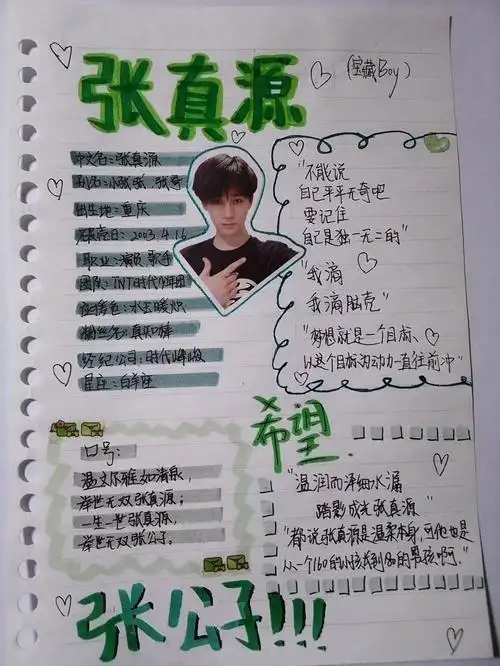 张真源
(宝藏Boy)
中文名:张真源
别名:小张张、张哥
出生地:重庆
出生日:2003.4.16
职业:演员 歌手
团队:TNT时代少年团
应援色:水玉暖炽
粉丝名:真知棒
经纪公司:时代峰峻
星座:白羊座
"不能说
自己平平无奇吧
要记住
自己是独一无二的"
"我滴
我滴胜克"
"梦想就是一个目标、
以这个目标为动力一直往前冲"
希望
口号:
温文尔雅如清泉,
举世无双张真源;
一生一世张真源,
举世无双张公子。
"温润而泽细水漏
踏影成光张真源"
"都说张真源是温柔本身,可他也是
从一个160的小孩长到180的男孩啊。"
张公子!!!